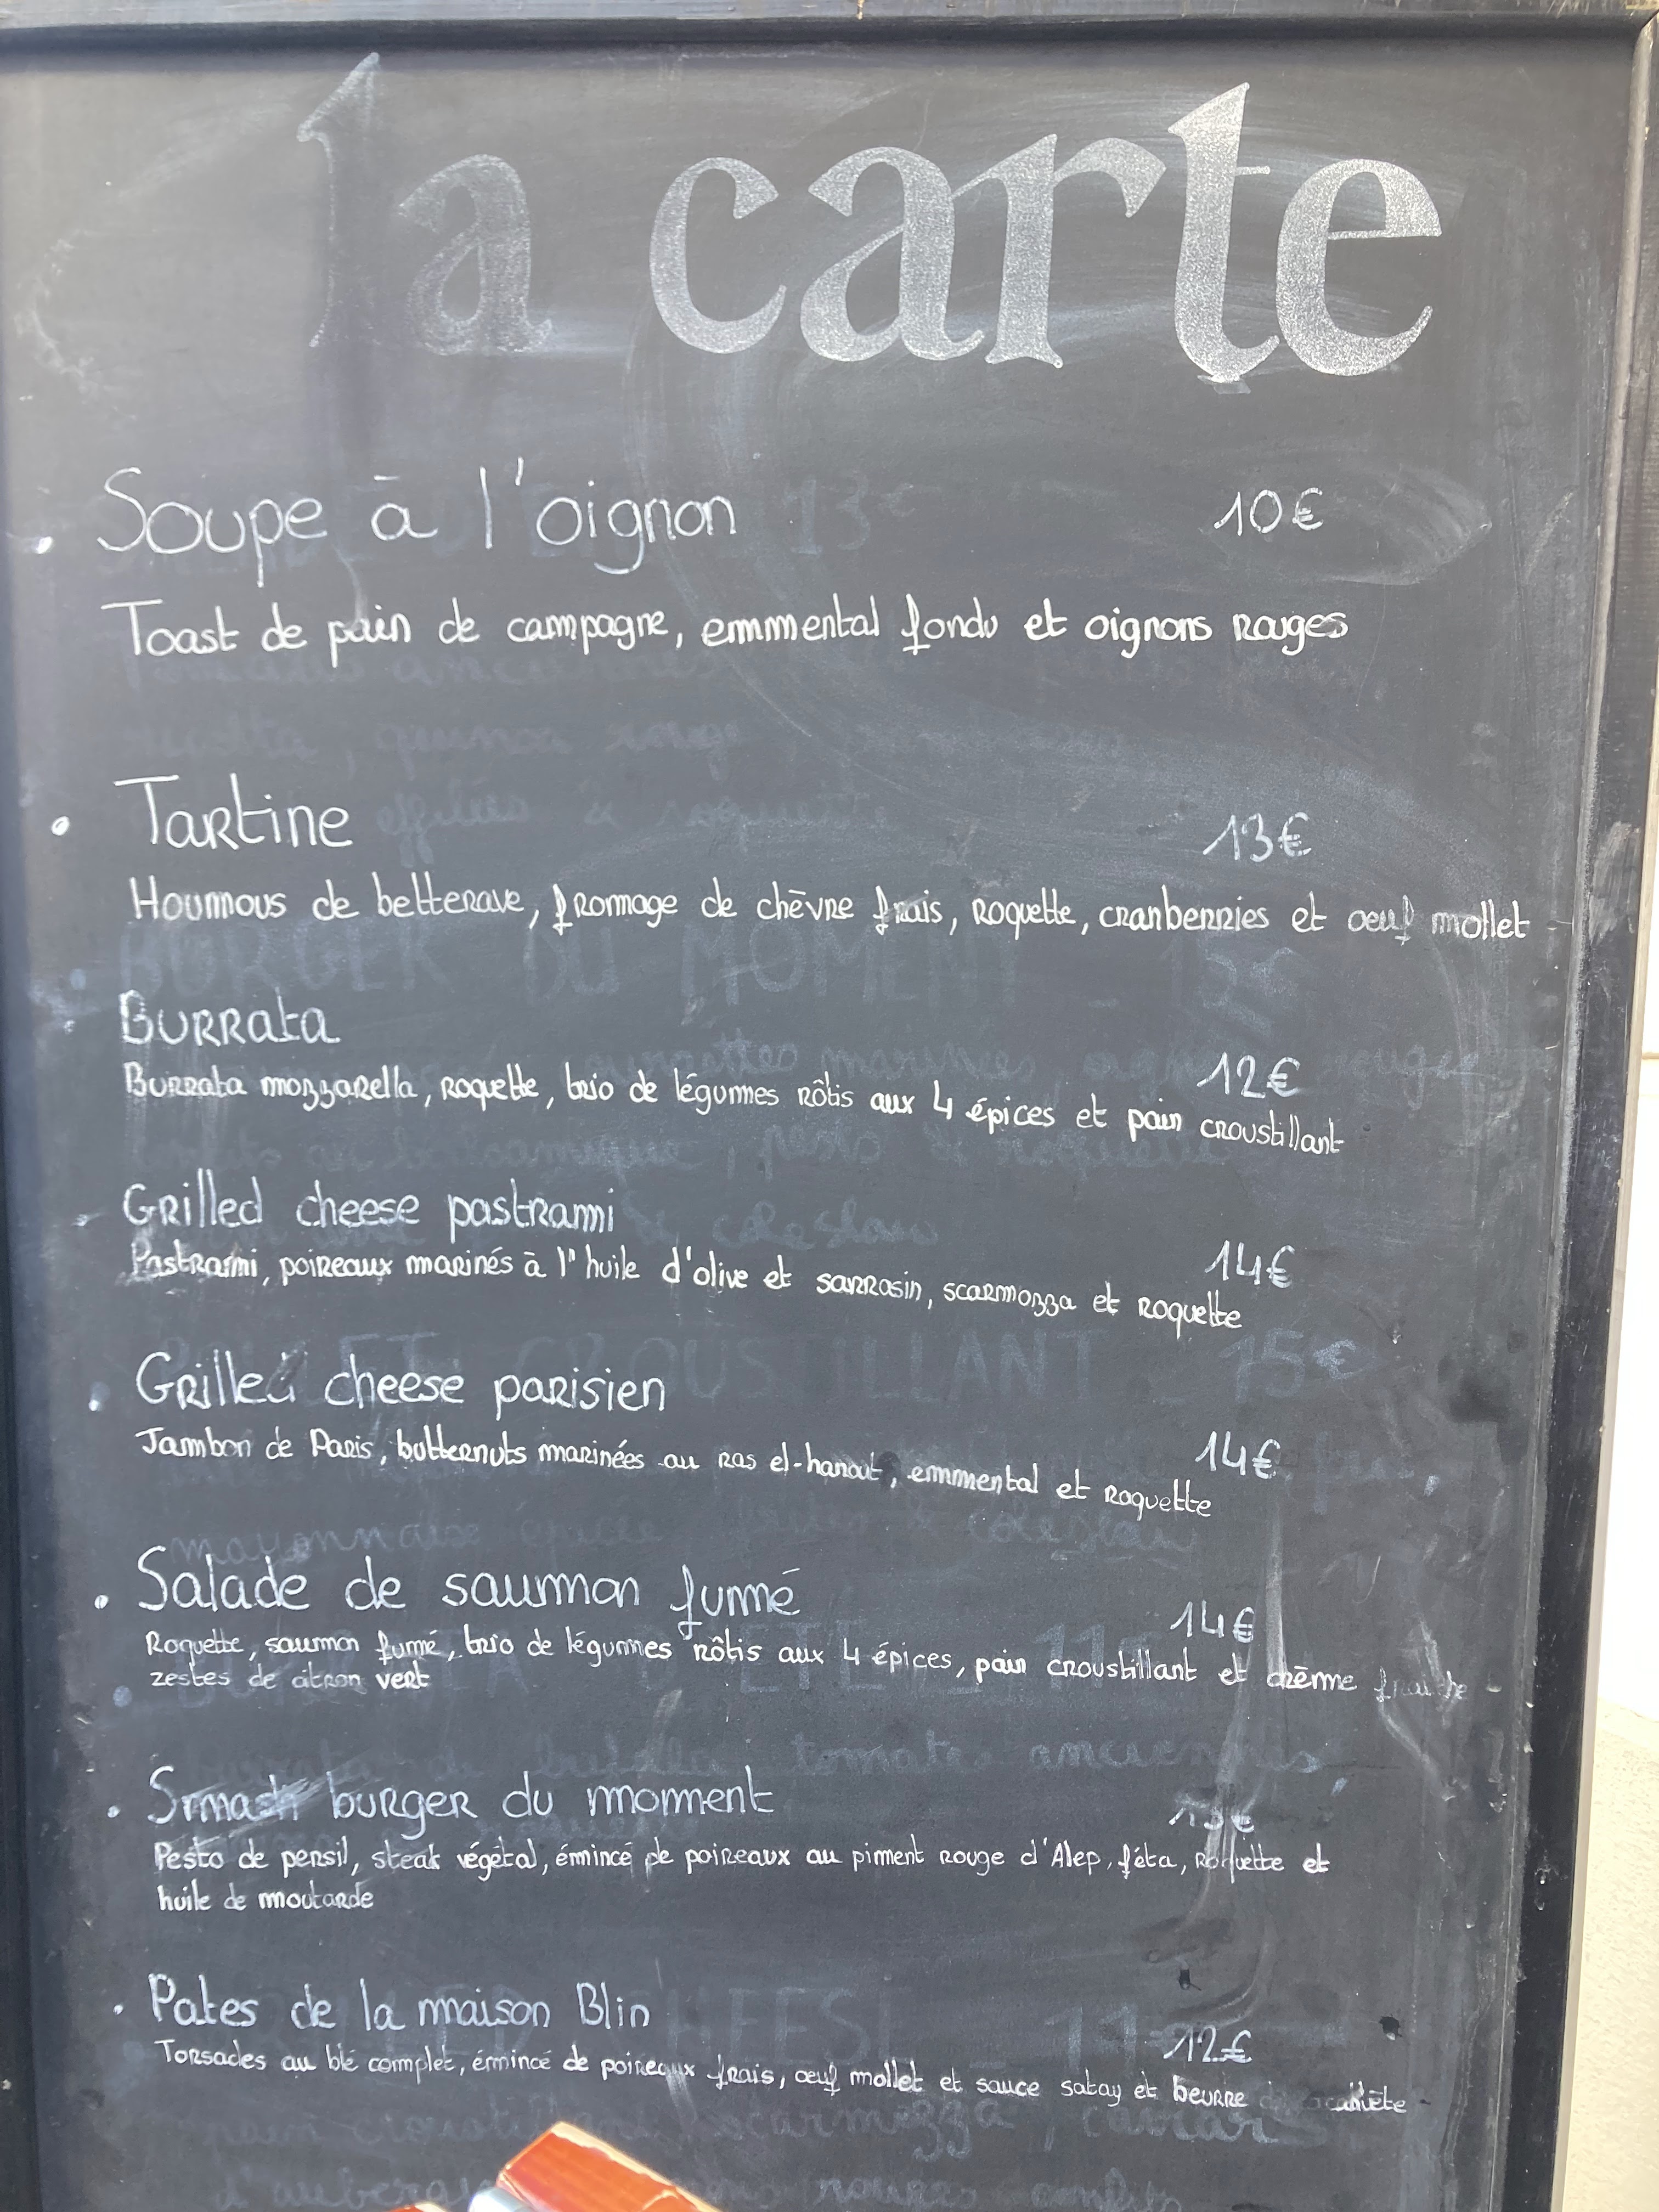 la carte
Soupe à l'oignon 10€
Toast de pain de campagne, emmental fondu et oignons rouges
Tartine 13€
Houmous de betterave, fromage de chèvre frais, roquette, cranberries et oeuf mollet
Burrata 12€
Burrata mozzarella, roquette, trio de légumes rôtis aux 4 épices et pain croustillant
Grilled cheese pastrami 14€
Pastrami, poireaux marinés à l'huile d'olive et sarrasin, scarmozza et roquette
Grilled cheese parisien 14€
Jambon de Paris, butternuts marinées au ras el-hanout, emmental et roquette
Salade de saumon fumé 14€
Roquette, saumon fumé, trio de légumes rôtis aux 4 épices, pain croustillant et crème fraîche
zestes de citron vert
Smash burger du moment
Pesto de persil, steak végétal, émincé de poireaux au piment rouge d'Alep, féta, roquette et
huile de moutarde
Pates de la maison Blin 12€
Torsades au blé complet, émincé de poireaux frais, oeuf mollet et sauce satay et beurre